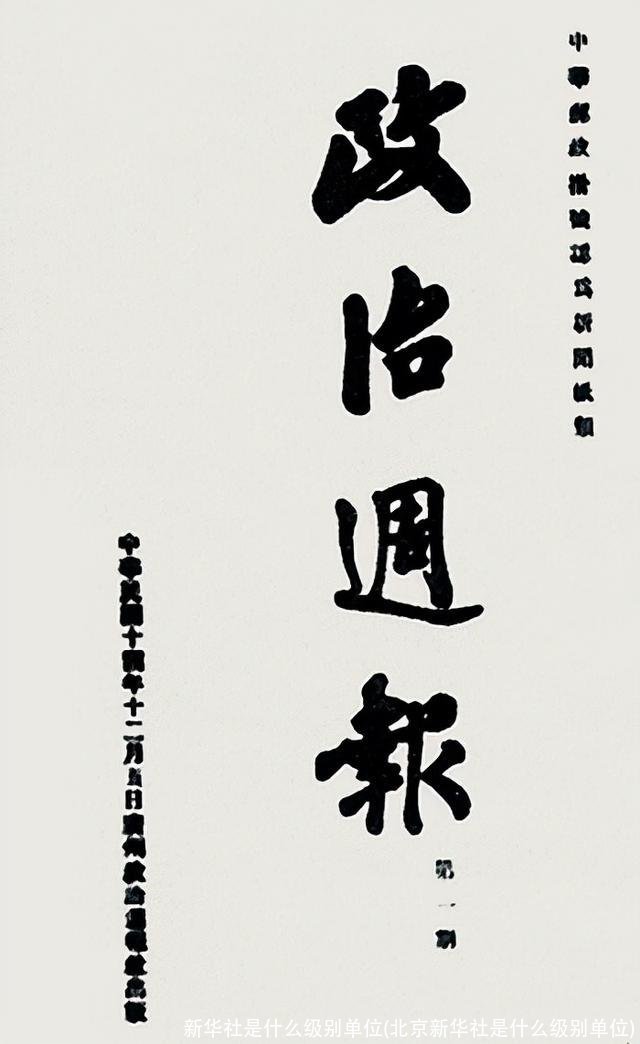 中華郵政掛號認為新聞紙類
政治週報
第一期
中華民國十四年十二月五日廣州政治週報社出版
新华社是什么级别单位(北京新华社是什么级别单位)